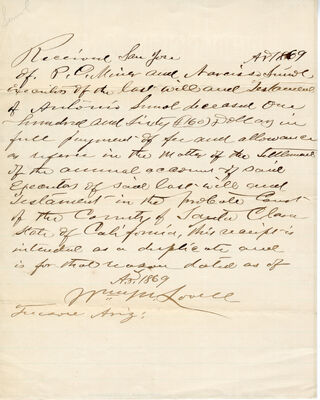 Sunol
Received San Jose A.D. 1869
of P. C. Miner and Narcisso Sunol
executors of the last will and Testament
of Antonio Sunol deceased One
hundred and Sixty ($160) Dollars in
full payment of fee and allowance
as referee in the matter of the Settlement
of the annual account of said
Executors of said last will and
Testament in the probate Court
of the County of Santa Clara
State of California, This receipt is
intended as a duplicate and
is for that reason dated as of
A.D. 1869
Lovell
Ariz.